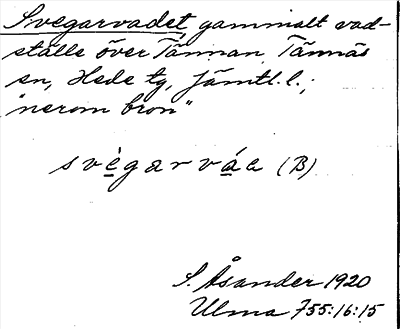 Svegarvadet, gammalt vad-
ställe över Tännan, Tännäs
sn, Hede tg, Jämtl. l.;
"nerom bron"
svègarváa (B)
S. Åsander 1920
Ulma 755:16:15